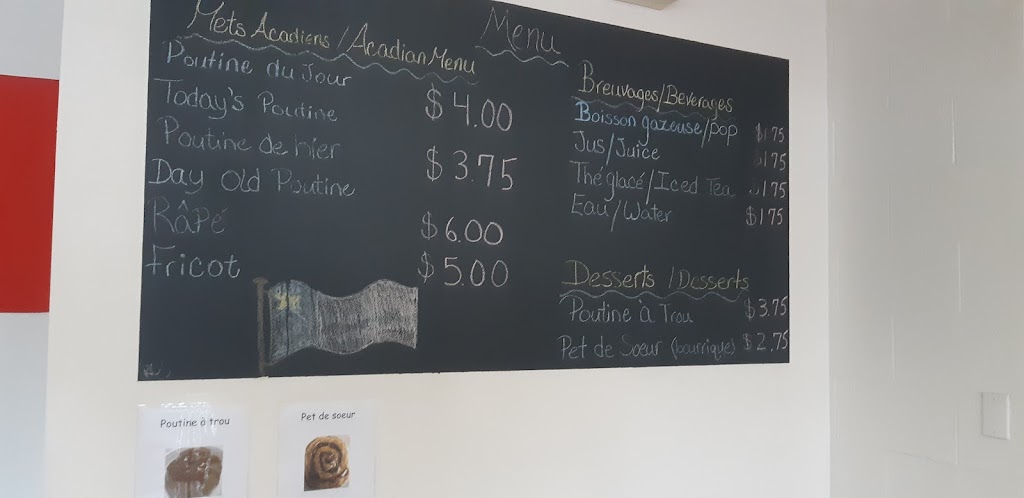 Menu
Mets Acadiens / Acadian Menu
Poutine du Jour
Today's Poutine $4.00
Poutine de hier
Day Old Poutine $3.75
Râpé $6.00
Fricot $5.00
Breuvages/Beverages
Boisson gazeuse/pop $1.75
Jus/Juice $1.75
Thé glacé/Iced Tea $1.75
Eau/Water $1.75
Desserts / Desserts
Poutine à Trou $3.75
Pet de Soeur (bourrique) $2.75
Poutine à trou
Pet de soeur